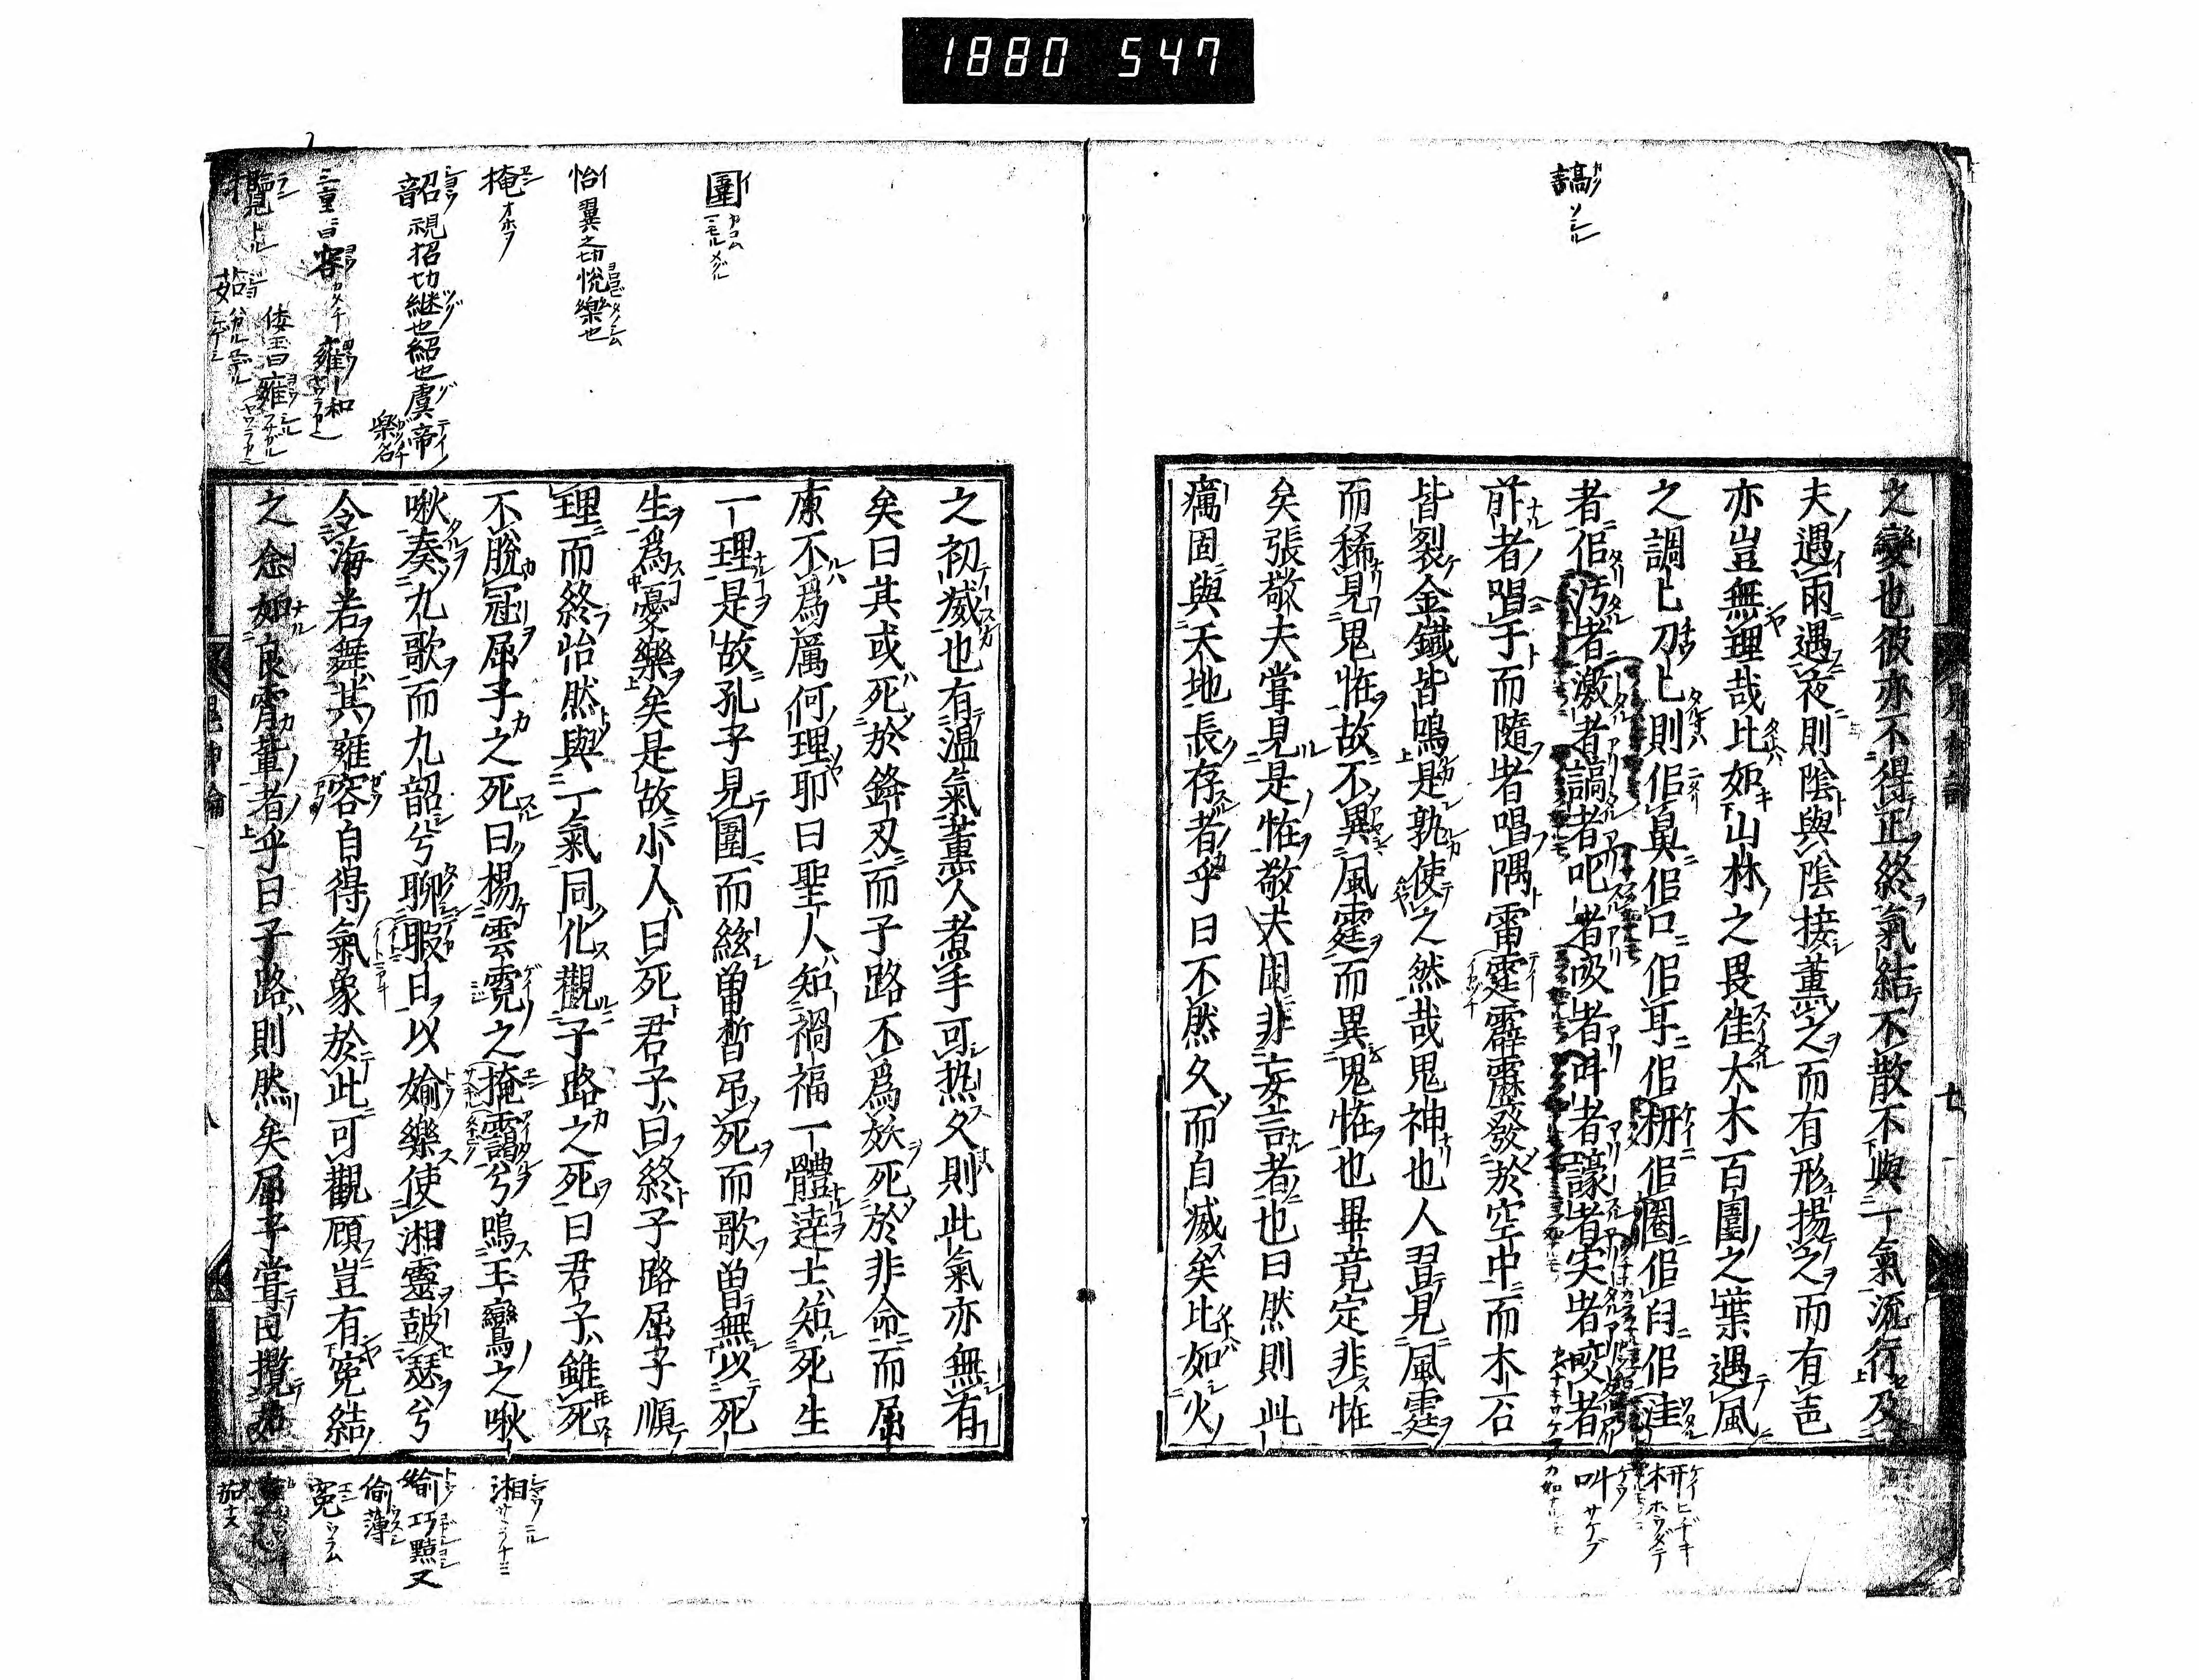 1880 547
謞
之變也彼亦不得正終氣結不散不與一氣流行及
夫遇雨遇夜則陰與陰接薰之而有形揚之而有声
亦豈無理哉比如山林之畏隹大木百圍之葉遇風
之調〻刀〻則佀鼻佀口佀耳佀枅佀圈佀臼佀洼
者佀汚者激者謞者叱者吸者叫者譹者宎者咬者
前者唱于而隨者唱隅雷霆霹靂發於空中而木石
皆裂金鐵皆鳴是孰使之然哉鬼神也人習見風霆
而稀見鬼恠故不異風霆而異鬼恠也畢竟定非恠
矣張敬夫嘗見是恠敬夫固非妄言者也曰然則此
癘固與天地長存者乎曰不然久而自滅矣比如火
枅 ケイ ヒヂキ ホウダテ
叫 サケブ
七
圍 イ カコム メグル
怡 翼之切悅樂也
掩 エン オホフ
韶 視招切継也紹也虞帝
樂名
容 カタチ 雍 和
倭玉曰雍
之初滅也有温氣薰人煮手可热久則此氣亦無有
矣曰其或死於鋒刃而子路不爲妖死於非命而屈
原不爲厲何理耶曰聖人知禍福一體達士知死生
一理是故孔子見圍而絃曾晳吊死而歌曽無以死
生爲憂樂矣是故小人曰死君子曰終子路屈子順
理而終怡然與一氣同化觀子路之死曰君子雖死
不脫冠屈子之死曰揚雲霓之掩靄兮鳴玉鸞之啾
啾奏九歌而九韶兮聊暇日以媮樂使湘靈皷瑟兮
令海若舞其雍容自得氣象於此可觀顧豈有寃結
之念如良霄輩者乎曰子路則然矣屈子嘗曰攬茹
湘
媮 巧黠又
偷薄
寃 エン ウラム
八